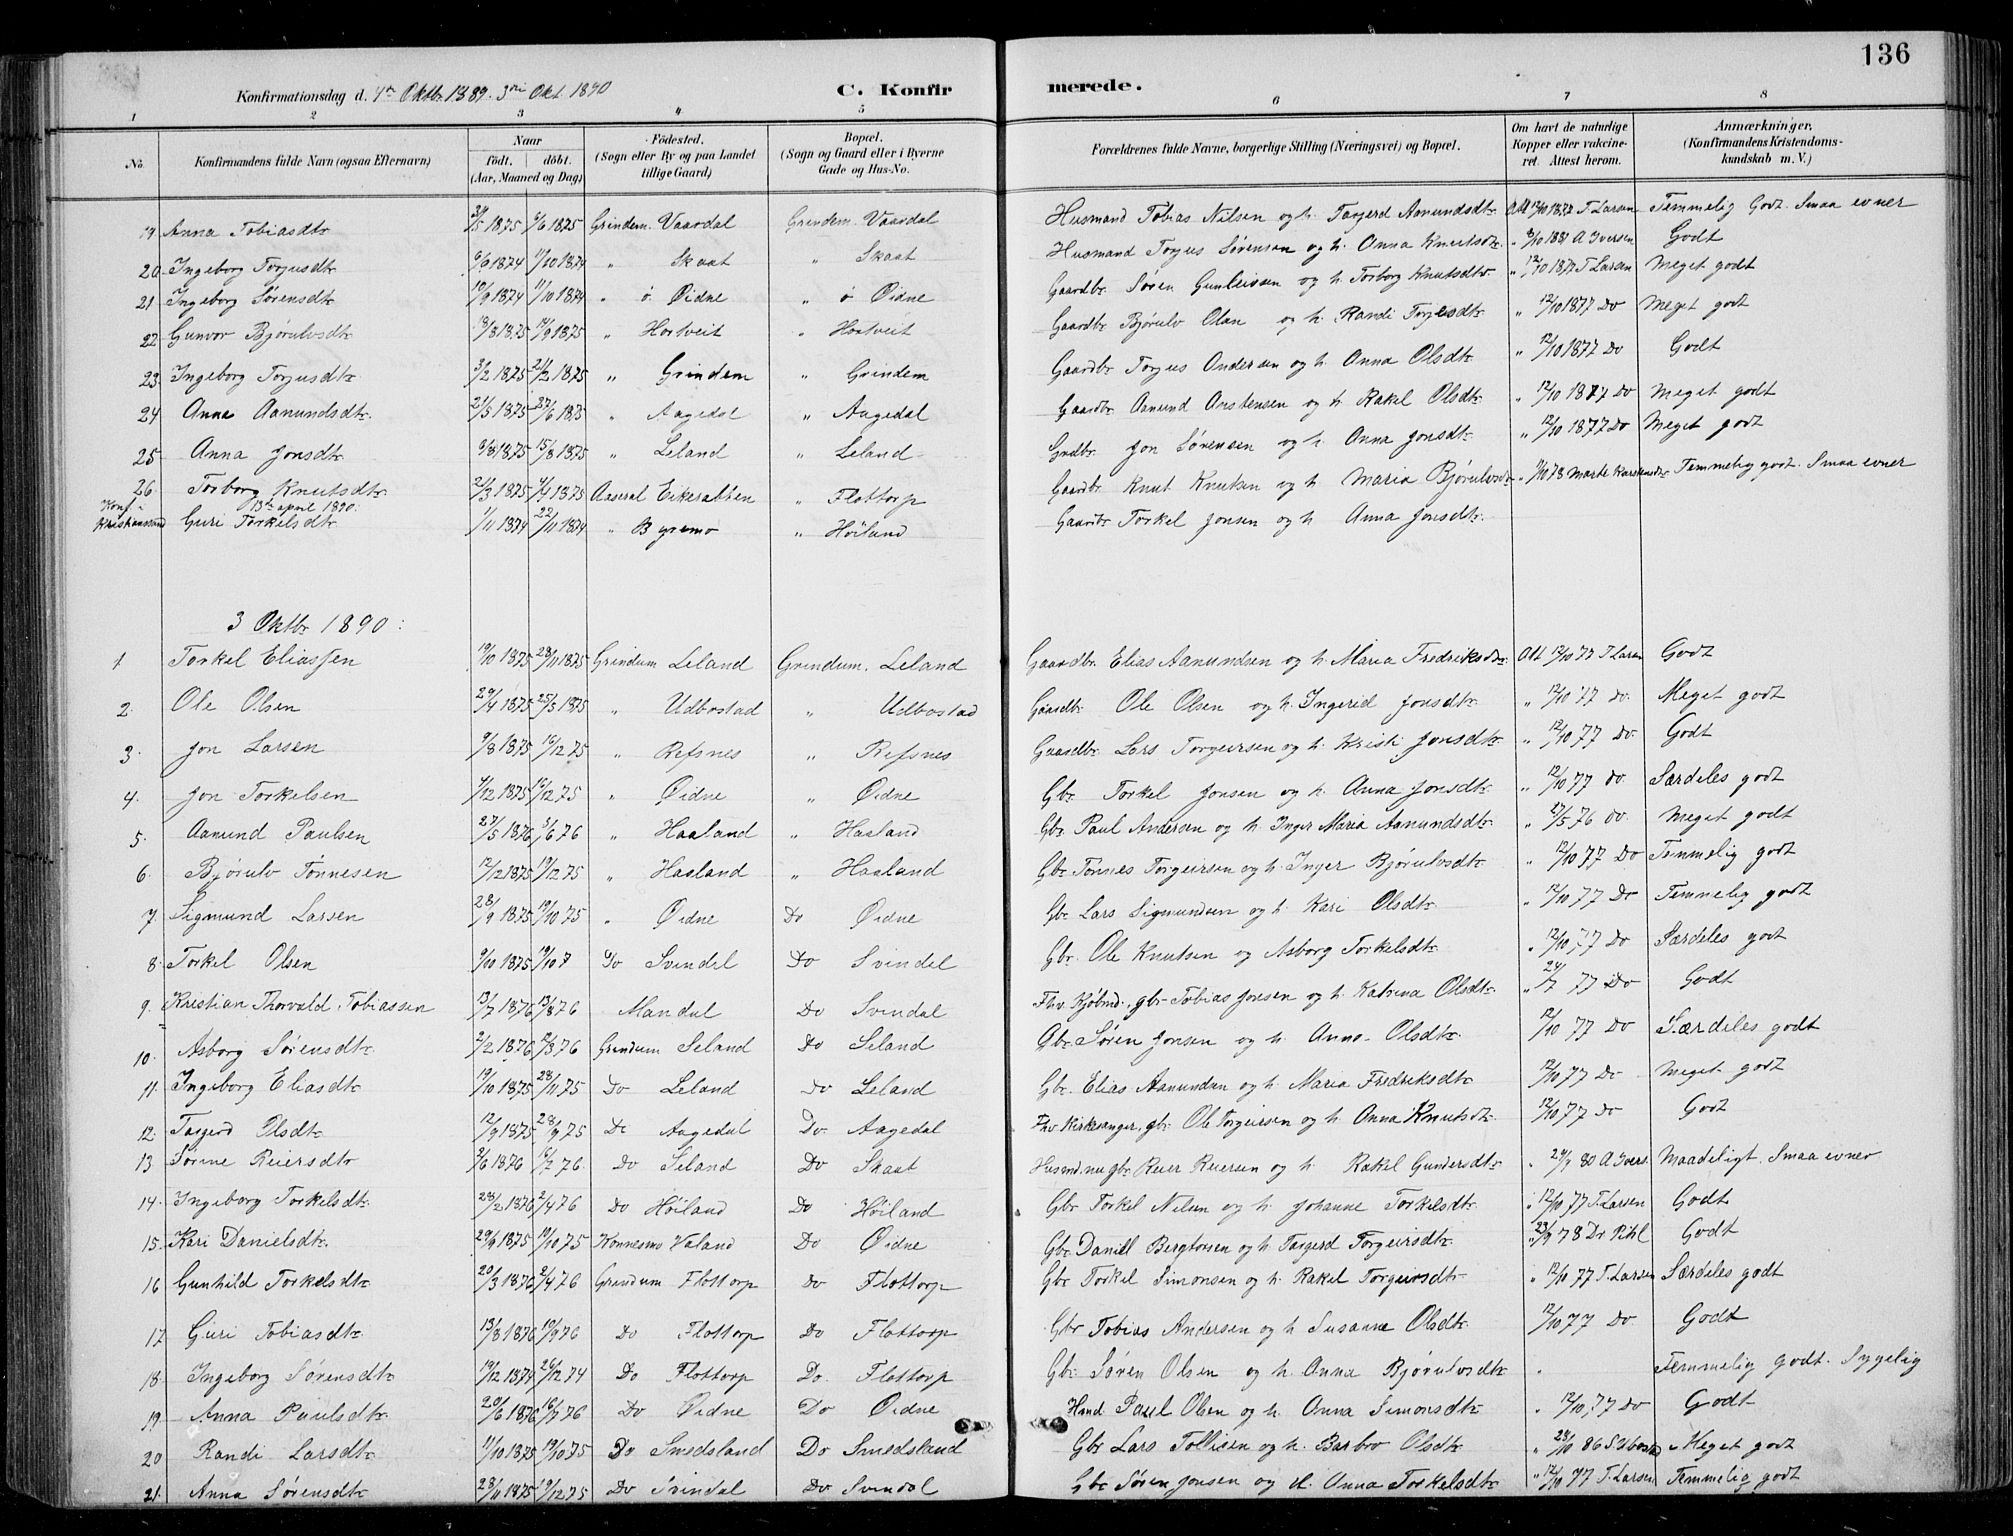 136
Konfirmationsdag d. 4de Oktbr. 1889. 3die Okt. 1890 C. Konfirmerede.
1 2 3 4 5 6 7 8
No. Konfirmandens fulde Navn (ogsaa Efternavn) Naar födt, döbt. (Aar, Maaned og Dag) Födested. (Sogn eller By og paa Landet tillige Gaard) Bopæl. (Sogn og Gaard eller i Byerne Gade og Hus-No. Forældrenes fulde Navne, borgerlige Stilling (Næringsvei) og Bopæl. Om havt de naturlige Kopper eller vakcineret. Attest herom. Anmærkninger. (Konfirmandens Kristendomskundskab m. V.)
19 Anna Tobiasdtr. 24/5 1875 6/6 1875 Grindem. Vaardal Grindem. Vaardal Husmand Tobias Nilsen og h. Targerd Aanundsdtr. Att 12/10 1877 T Larsen Temmelig Godt. Smaa evner
20 Ingeborg Torjusdtr. 6/9 1874 11/10 1874 " Skaat " Skaat Husmand Torjus Sørensen og h. Anna Knutsdtr. " 8/10 1881 A Iversen Godt
21 Ingeborg Sørensdtr. 19/9 1874 11/10 1874 " ö. Øidne " ö Øidne Gaardbr. Søren Gunleivsen og h. Torborg Knutsdtr. " 12/10 1877 T Larsen Meget godt
22 Gunvor Bjørulvsdtr. 18/8 1875 19/9 1875 " Hortveit " Hortveit Gaardbr. Bjørulv Olsen og h. Randi Torjesdtr. " 12/10 1877 Do Meget godt
23 Ingeborg Torjusdtr. 3/2 1875 21/2 1875 " Grindem " Grindem Gaardbr. Torjus Andersen og h. Anna Olsdtr. " 12/10 1877 Do Godt
24 Anne Aanundsdtr. 21/5 1875 27/6 1875 " Aagedal " Aagedal Gaardbr. Aanund Arstensen og h. Rakel Olsdtr. " 12/10 1877 Do Meget godt
25 Anna Jonsdtr. 9/8 1875 15/8 1875 " Leland " Leland Grdbr. Jon Sørensen og h. Anna Jonsdtr. " 12/10 1877 Do Meget godt
26 Torborg Knutsdtr. 21/3 1875 4/4 1875 Aaseral Eikeraasen " Flottorp Gaardbr. Knut Knutsen og h. Maria Bjørulvsdtr. " 9/10 78 Marte Karstensdtr. Temmelig godt. Smaa evner
Konf. i Kristianssand 13de april 1890. Guri Torkelsdtr. 1/11 1874 22/11 1874 " Byremo " Höiland Gaardbr. Torkel Jonsen og h. Anna Jonsdtr.
3 Oktbr. 1890:
1 Torkel Eliassen 19/10 1875 28/11 1875 Grindum Leland Grindum. Leland Gaardbr. Elias Aanundsen og h. Maria Fredriksdtr. Att 12/10 77 T. Larsen Godt
2. Ole Olsen 29/4 1875 25/5 1875 " Udbostad " Udbostad Gaardbr. Ole Olsen og h. Ingerid Jonsdtr. " 12/10 77 Do. Meget godt
3. Jon Larsen 9/8 1875 16/12 75 " Refsnes " Refsnes Gaardbr. Lars Torgeirsen og h. Kristi Jonsdtr. " 12/10 77 Do Godt
4. Jon Torkelsen 4/12 1875 16/12 75 " Øidne " Øidne Gbr. Torkel Jonsen og h. Anna Jonsdtr. " 12/10 77 Do Særdeles godt
5. Aanund Paulsen 27/5 1876 5/6 76 " Haaland " Haaland Gbr. Paul Andersen og h. Inger Maria Aanundsdtr. " 27/5 76 Do. Meget godt
6. Bjørulv Tönnesen 12/12 1875 19/12 75 " Haaland " Haaland Gbr. Tönnes Torgeirsen og h. Inger Bjørulvsdtr. " 12/10 77 Do Temmelig godt
7. Sigmund Larsen 28/9 1875 19/10 75 " Øidne Do Øidne Gbr. Lars Sigmundsen og h. Kari Olsdtr. " 12/10 77 Do Temmelig godt
8. Torkel Olsen 9/10 1875 19/10 7 Do Svindal Do Svindal Gbr. Ole Knutsen og Asborg Torkelsdtr. " 12/10 77 Do Særdeles godt
9. Kristian Thorvald Tobiassen 13/7 1876 13/8 76 Mandal Do Svindal Fhv. Kjöbmd., gbr. Tobias Jonsen og h. Katrina Olsdtr. " 24/7 77 Do Godt
10. Asborg Sørensdtr. 2/2 1876 12/3 76 Grindum Leland Do Leland Gbr. Søren Jonsen og h. Anna Olsdtr. 12/10 77 Do Særdeles godt
11. Ingeborg Eliasdtr. 19/10 1875 28/11 75 Do Leland Do Leland Gbr. Elias Aanundsen og h. Maria Fredriksdtr. 12/10 77 Do Meget godt
12. Targerd Olsdtr. 12/9 1875 28/9 75 Do Aagedal Do. Aagedal Fhv. Kirkesanger, gbr. Ole Torgeirsen og h. Anna Knutsdtr. 12/10 77 Do Godt
13. Sørine Reiersdtr. 3/6 1876 16/7 76 Do Leland Do Skaat Husmd. nu gbr. Reier Reiersen og h. Rakel Gundersdtr. " 24/9 80 A Ivers. Maadeligt. Smaa evner
14. Ingeborg Torkelsdtr. 28/2 1876 2/4 76 Do Höiland Do Höiland Gbr. Torkel Nilsen og h. Johanne Torkelsdtr. " 12/10 77 T. Larsen Godt
15. Kari Danielsdtr. 29/9 1875 19/10 75 Konnesmo Valand Do Øidne Gbr. Daniel Bergtorsen og h. Targerd Torgeirsdtr. " 23/9 78 Dr. Pihl Godt
16 Gunhild Torkelsdtr. 20/3 1876 2/4 76 Grindum Flottorp Do Flottorp Gbr. Torkel Simonsen og h. Rakel Torgeirsdtr. " 12/10 77 T. Larsen Særdeles godt
17 Guri Tobiasdtr. 13/8 1876 10/9 76 Do Flottorp Do Flottorp Gbr. Tobias Andersen og h. Susanne Olsdtr. 12/10 77 Do Godt
18. Ingeborg Sørensdtr. 19/12 1874 26/12 74 Do Flottorp Do. Flottorp Gbr. Søren Olsen og h. Anna Bjørulvsdtr. " Temmelig godt. Sygelig
19 Anna Paulsdtr. 20/6 1876 16/7 76 Do Øidne Do Øidne Hmd. Paul Olsen og h. Anna Simonsdtr. " 12/10 77 Do Godt
20 Randi Larsdtr. 11/10 1875 19/10 75 Do Smedsland Do Smedsland Gbr. Lars Tollisen og h. Barbro Olsdtr. " 28/10 86 Meget godt
21. Anna Sørensdtr. 28/11 1875 19/12 75 Do Svindal Do Svindal Gbr. Søren Jonsen og h. Anna Torkelsdtr. " 12/10 77 T. Larsen Temmelig godt